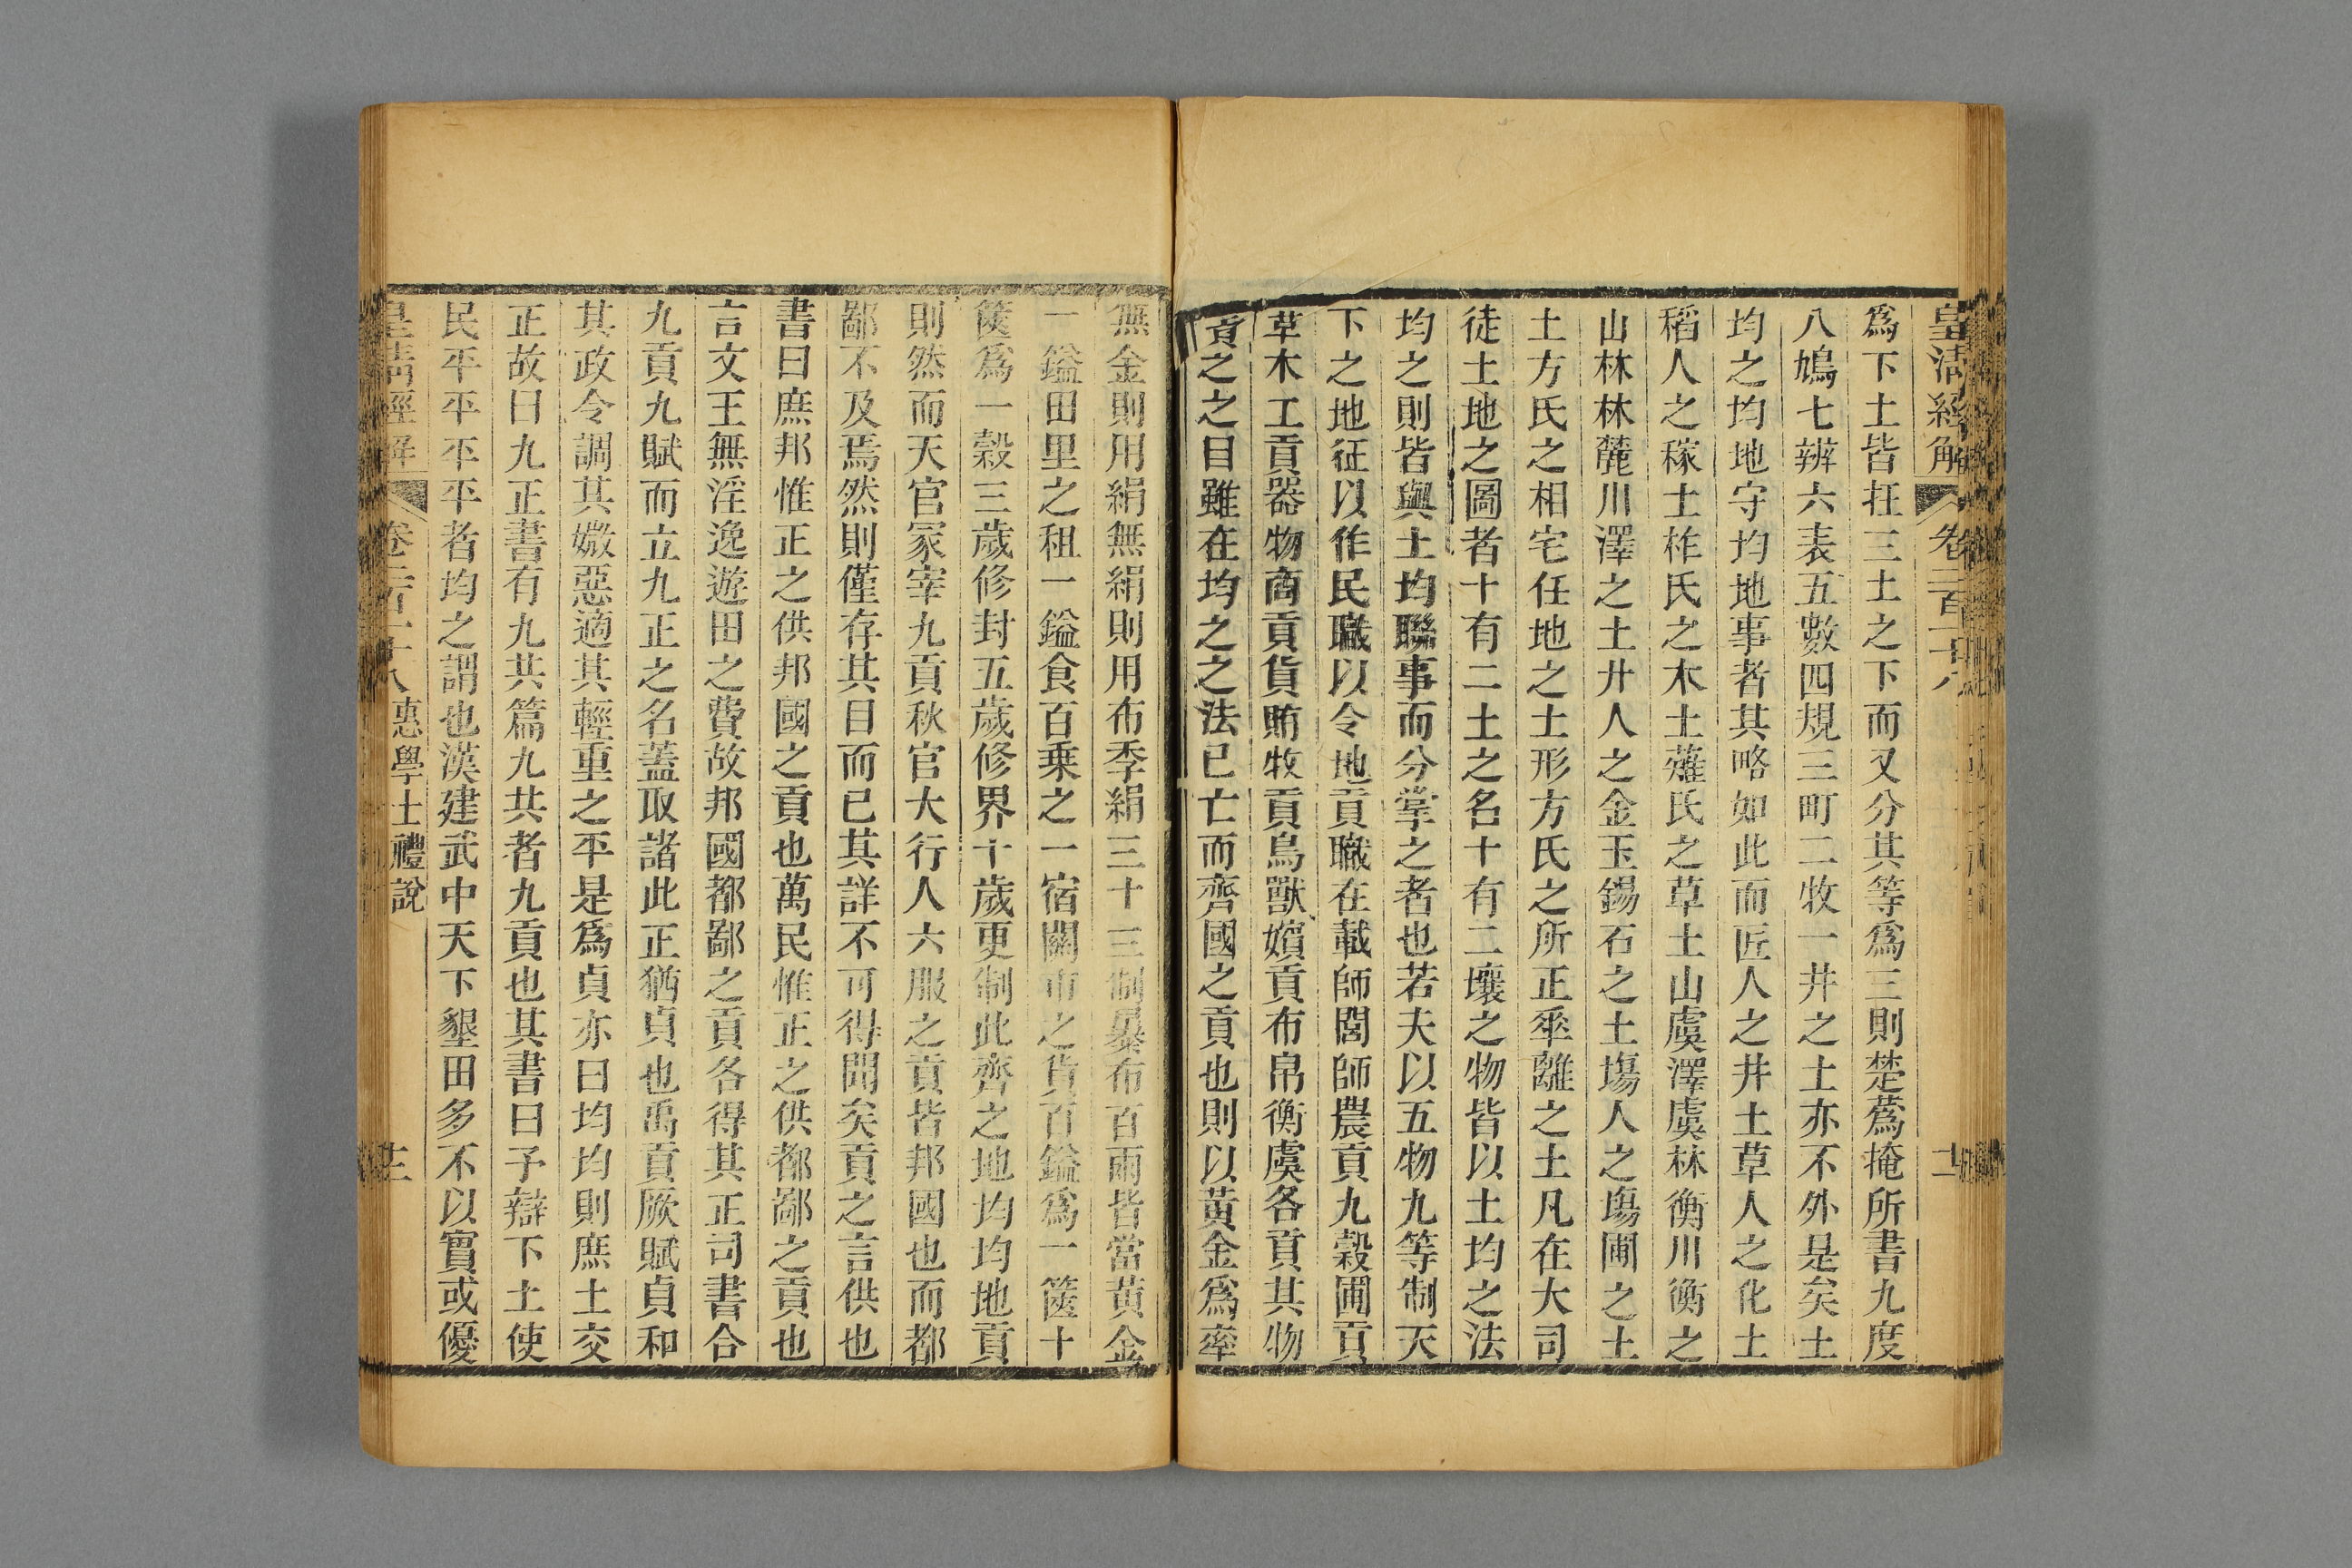 皇清經解 卷二百十八 十二
爲下土皆在三土之下而又分其等爲三則楚蒍掩所書九度
八鳩七辨六表五數四規三町二牧一井之土亦不外是矣土
均之均地守均地事者其略如此而匠人之井土草人之化土
稻人之稼土柞氏之木土薙氏之草土山虞澤虞林衡川衡之
山林林麓川澤之土廾人之金玉錫石之土塲人之塲圃之土
土方氏之相宅任地之土形方氏之所正華離之土凡在大司
徒土地之圖者十有二土之名十有二壤之物皆以土均之法
均之則皆與土均聯事而分掌之者也若夫以五物九等制天
下之地征以作民職以令地貢職在載師閭師農貢九穀圃貢
草木工貢器物商貢貨賄牧貢鳥獸嬪貢布帛衡虞各貢其物
貢之之目雖在均之之法已亡而齊國之貢也則以黃金爲率
無金則用絹無絹則用布季絹三十三制暴布百兩皆當黃金
一鎰田里之租一鎰食百乘之一宿關市之貨百鎰爲一篋十
篋爲一穀三歲修封五歲修界十歲更制此齊之地均均地貢
則然而天官冢宰九貢秋官大行人六服之貢皆邦國也而都
鄙不及焉然則僅存其目而已其詳不可得聞矣貢之言供也
書曰庶邦惟正之供邦國之貢也萬民惟正之供都鄙之貢也
言文王無淫逸遊田之費故邦國都鄙之貢各得其正司書合
九貢九賦而立九正之名蓋取諸此正猶貞也禹貢厥賦貞和
其政令調其媺惡適其輕重之平是爲貞亦曰均均則庶土交
正故曰九正書有九共篇九共者九貢也其書曰予辯下土使
民平平平者均之謂也漢建武中天下墾田多不以實或優
皇清經解 卷二百十八 惠學士禮說 十三